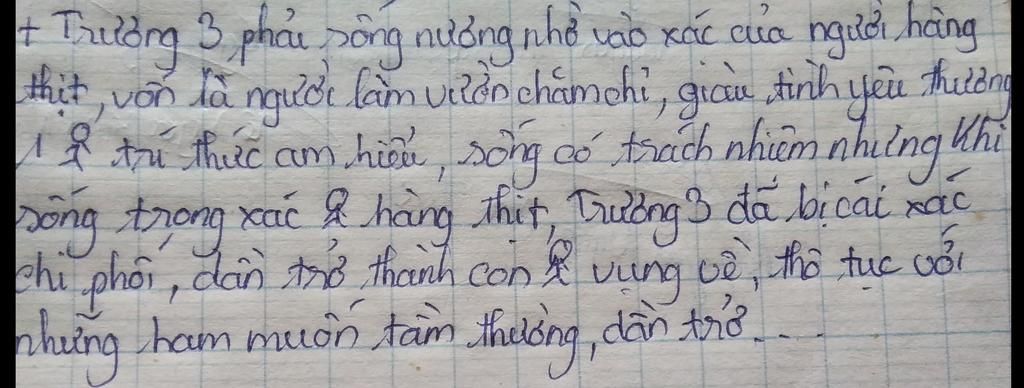 + Trương 3 phải sống nương nhờ vào xác của người hàng
thịt, vốn là người làm vườn chăm chỉ, giàu tình yêu thương
1 trí thức am hiểu, sống có trách nhiệm nhưng khi
sống trong xác hàng thịt, Trương 3 đã bị cái xác
chi phối, dần trở thành con vụng về, thô tục với
những ham muốn tầm thường, dần trở...